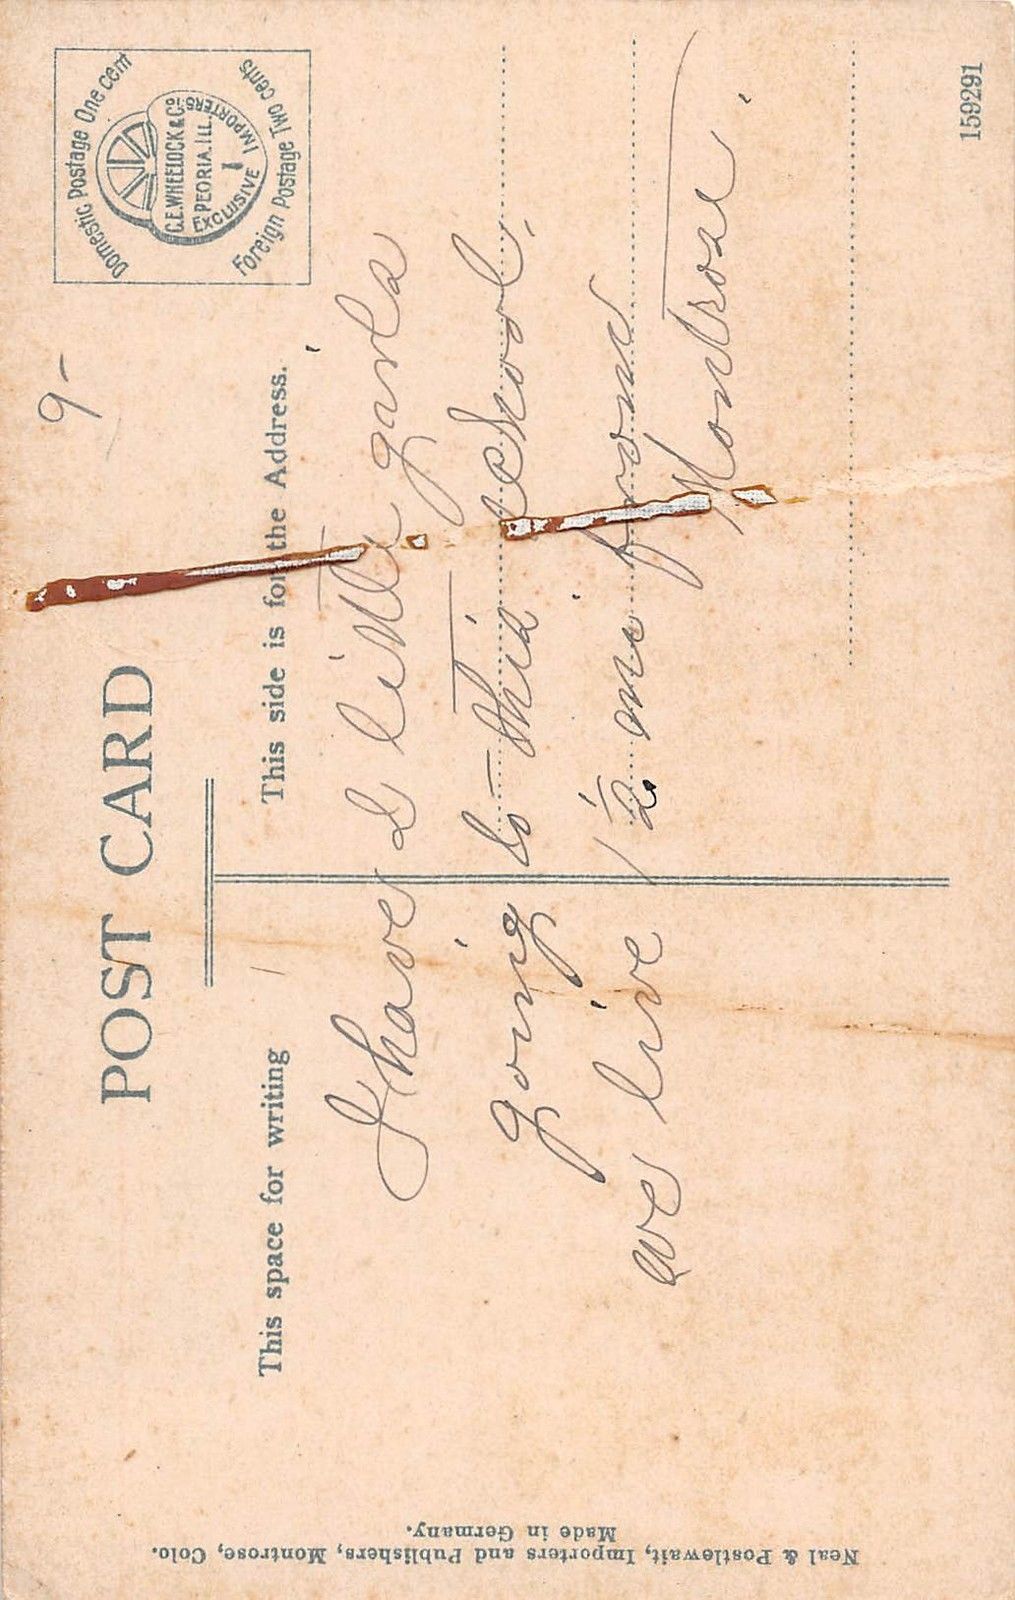 POST CARD
This space for writing
This side is for the Address.
Domestic Postage One cent
C.E. WHEELOCK & CO.
PEORIA. ILL.
EXCLUSIVE IMPORTERS
Foreign Postage Two cents
9-
I have 2 little girls
going to this school.
we live 1½ mi from
Montrose
Neal & Postlewait, Importers and Publishers, Montrose, Colo.
Made in Germany.
159291